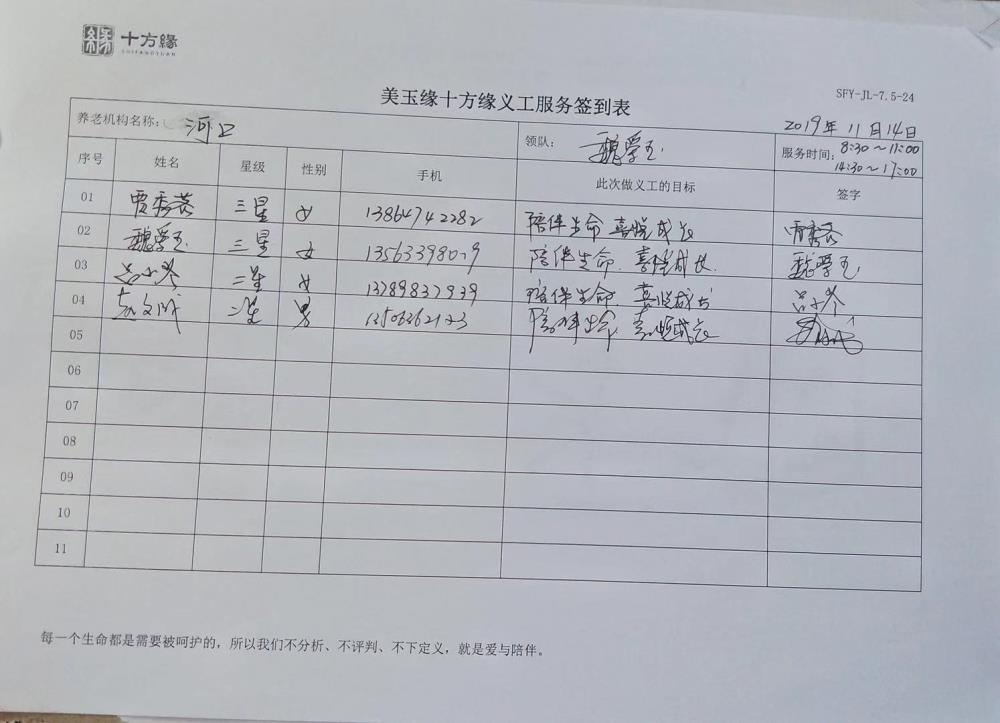 十方緣
SHIFANGYUAN
SFY-JL-7.5-24
美玉缘十方缘义工服务签到表
2019年11月14日
养老机构名称: 河口 领队: 魏学玉 服务时间: 8:30~11:00
14:30~17:00
序号 姓名 星级 性别 手机 此次做义工的目标 签字
01 贾秀蓉 三星 女 13864742282 陪伴生命 喜悦成长 贾秀蓉
02 魏学玉 三星 女 陪伴生命.喜悦成长. 魏学玉
03 吕小琴 二星 女 陪伴生命.喜悦成长 吕小琴
04 二星 男 陪伴生命.喜悦成长
05
06
07
08
09
10
11
每一个生命都是需要被呵护的，所以我们不分析、不评判、不下定义，就是爱与陪伴。